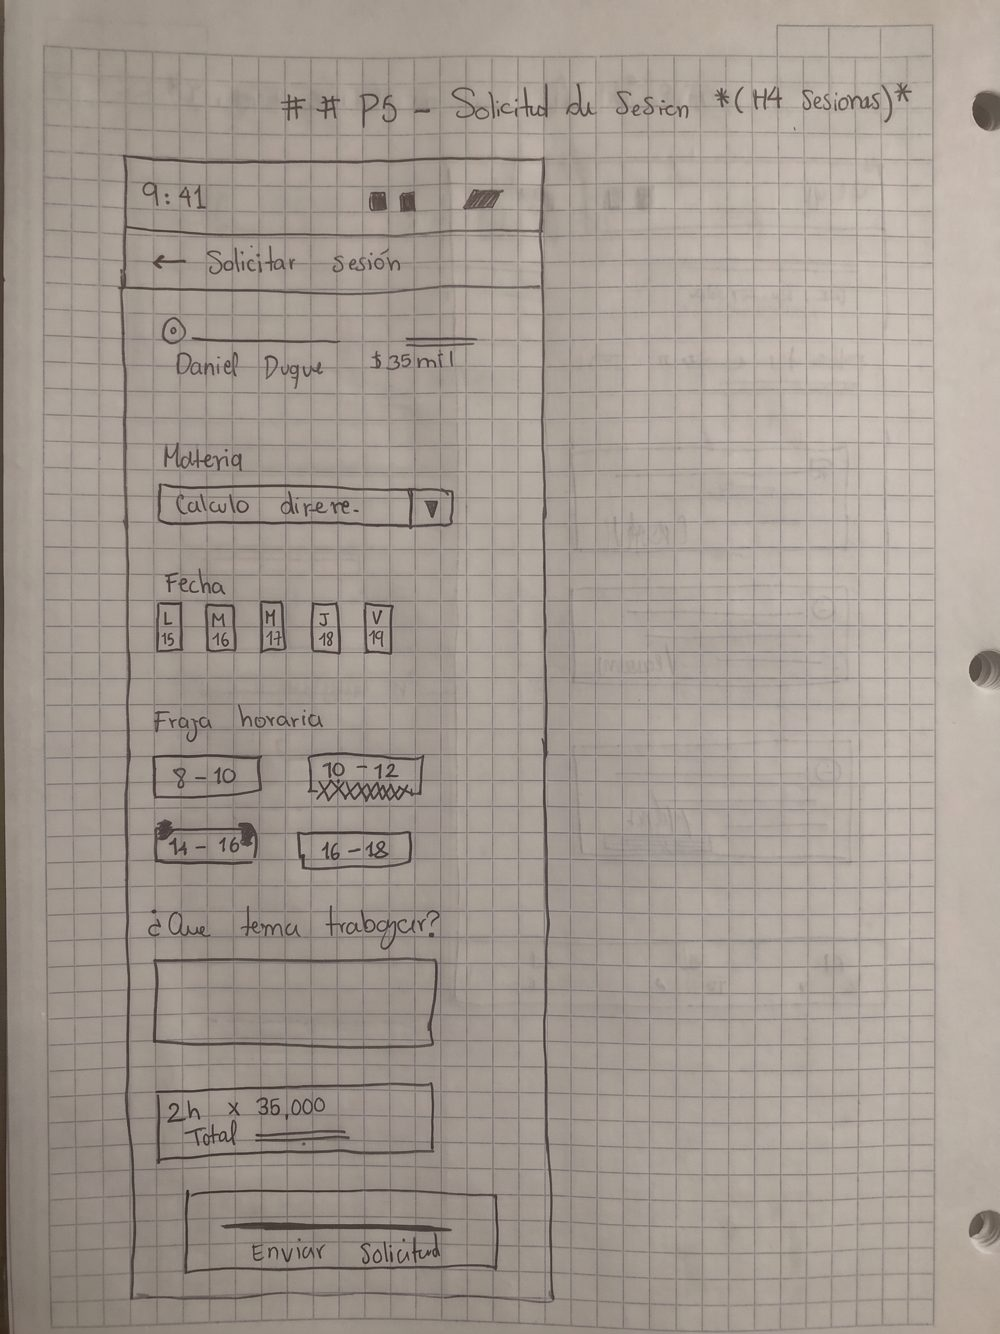 ## P5 - Solicitud de Sesion *(H4 Sesionas)*
9:41
← Solicitar sesión
Daniel Duque $35mil
Materia
Calculo difere-
Fecha
L M M J V
15 16 17 18 19
Fraja horaria
8-10 10-12
14-16 16-18
¿Que tema trabajar?
2h x 35,000
Total
Enviar Solicitud